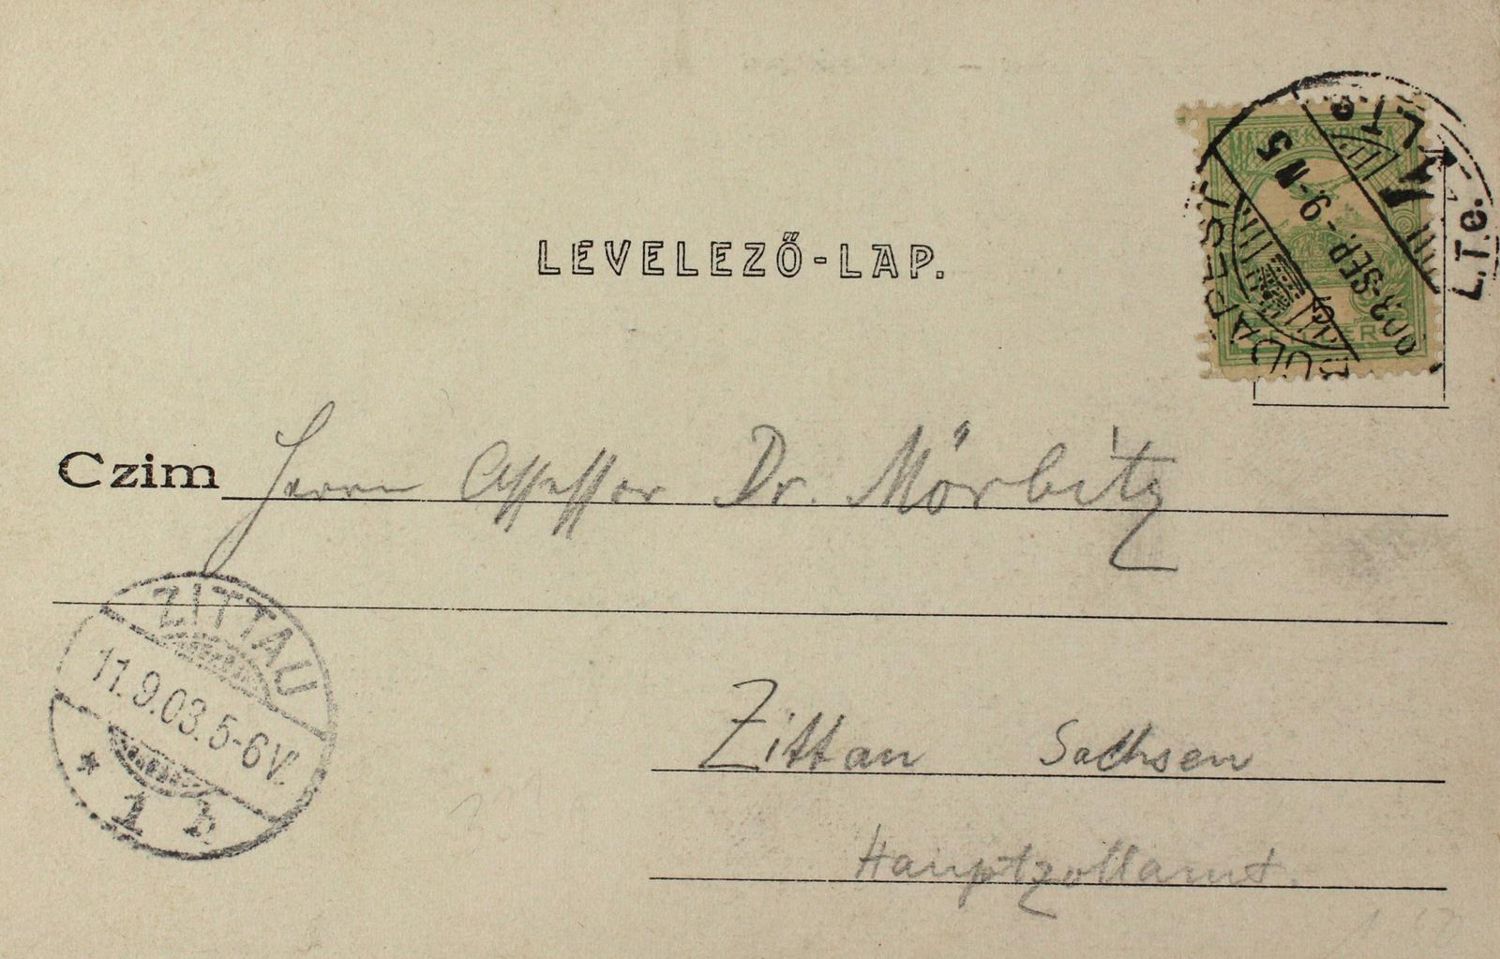 LEVELEZŐ-LAP.
BUDAPEST
903-SEP.-9-N5
L.T.e.
Czim Herrn Assessor Dr. Mörbitz
ZITTAU
11.9.03.5-6V.
* 1 b
Zittau Sachsen
Hauptzollamt.